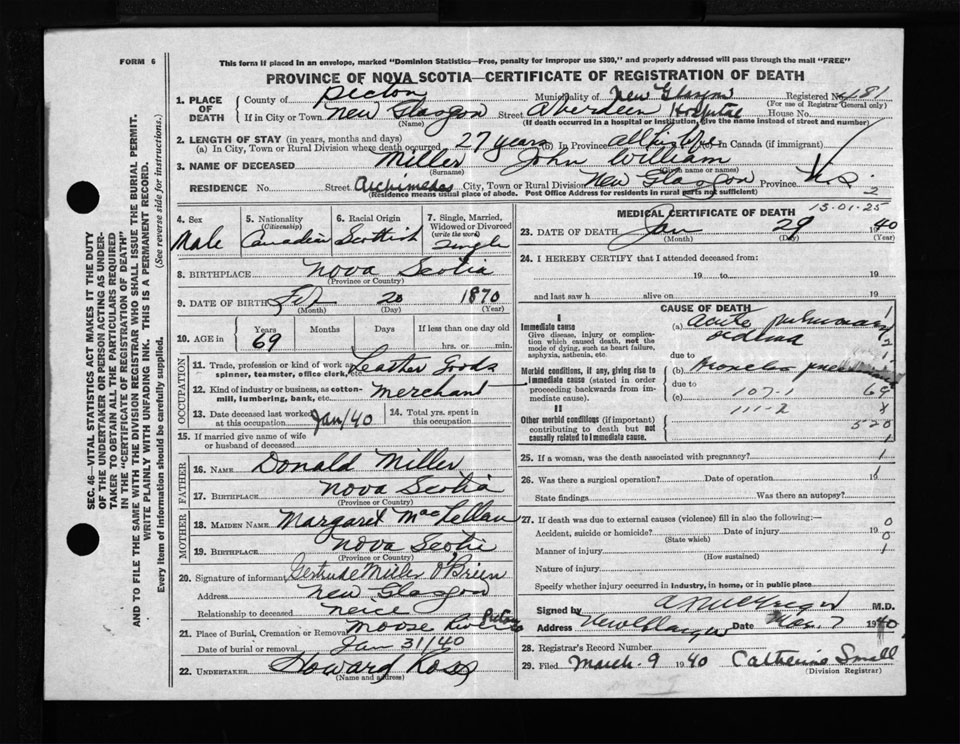 FORM 6
This form if placed in an envelope, marked "Dominion Statistics—Free, penalty for improper use $300," and properly addressed will pass through the mail "FREE"
PROVINCE OF NOVA SCOTIA—CERTIFICATE OF REGISTRATION OF DEATH
1. PLACE OF DEATH County of Pictou Municipality of New Glasgow Registered No. 181
(For use of Registrar General only)
If in City or Town New Glasgow Street Aberdeen Hospital House No.
(Name) (If death occurred in a hospital or institution, give the name instead of street and number)
2. LENGTH OF STAY (in years, months and days)
(a) In City, Town or Rural Division where death occurred 27 years (b) In Province all his life (c) In Canada (if immigrant)
3. NAME OF DECEASED Miller John William
(Surname) (Given name or names)
RESIDENCE No. Street Archimedes City, Town or Rural Division New Glasgow Province N.S.
(Residence means usual place of abode. Post Office Address for residents in rural parts not sufficient) 2
4. Sex Male
5. Nationality (Citizenship) Canadian
6. Racial Origin Scottish
7. Single, Married, Widowed or Divorced (write the word) Single
8. BIRTHPLACE Nova Scotia
(Province or Country)
9. DATE OF BIRTH Feb 20 1870
(Month) (Day) (Year)
10. AGE in Years 69 Months Days If less than one day old
hrs. or min.
OCCUPATION
11. Trade, profession or kind of work as spinner, teamster, office clerk, etc. Leather Goods
12. Kind of industry or business, as cotton-mill, lumbering, bank, etc. Merchant
13. Date deceased last worked at this occupation Jan/40 14. Total yrs. spent in this occupation
15. If married give name of wife or husband of deceased
FATHER
16. NAME Donald Miller
17. BIRTHPLACE Nova Scotia
(Province or Country)
MOTHER
18. MAIDEN NAME Margaret MacLellan
19. BIRTHPLACE Nova Scotia
(Province or Country)
20. Signature of informant Gertrude Miller O'Brien
Address New Glasgow
Relationship to deceased neice
21. Place of Burial, Cremation or Removal Moose River Pictou
Date of burial or removal Jan 31/40
22. UNDERTAKER Howard Ross
(Name and address)
MEDICAL CERTIFICATE OF DEATH 13-01-25
23. DATE OF DEATH Jan 29 1940
(Month) (Day) (Year)
24. I HEREBY CERTIFY that I attended deceased from:
19 to 19
and last saw h alive on 19
CAUSE OF DEATH
I
Immediate cause
Give disease, injury or complication which caused death, not the mode of dying, such as heart failure, asphyxia, asthenia, etc.
(a) acute pulmonary edema
due to
Morbid conditions, if any, giving rise to immediate cause (stated in order proceeding backwards from immediate cause).
(b) Broncho pneumonia
due to
(c) 107-1 69
II
111-2
Other morbid conditions (if important) contributing to death but not causally related to immediate cause.
520
25. If a woman, was the death associated with pregnancy?
26. Was there a surgical operation? Date of operation 1
State findings Was there an autopsy?
27. If death was due to external causes (violence) fill in also the following:— 0
Accident, suicide or homicide? Date of injury 19 0
(State which)
Manner of injury 1
(How sustained)
Nature of injury
Specify whether injury occurred in industry, in home, or in public place
Signed by M.D.
Address New Glasgow Date Mar. 7 1940
28. Registrar's Record Number
29. Filed March 9 1940 Catherine Small
(Division Registrar)
SEC. 46—VITAL STATISTICS ACT MAKES IT THE DUTY
OF THE UNDERTAKER OR PERSON ACTING AS UNDER-
TAKER TO OBTAIN ALL THE PARTICULARS REQUIRED
IN THE "CERTIFICATE OF REGISTRATION OF DEATH"
AND TO FILE THE SAME WITH THE DIVISION REGISTRAR WHO SHALL ISSUE THE BURIAL PERMIT.
WRITE PLAINLY WITH UNFADING INK. THIS IS A PERMANENT RECORD.
Every item of information should be carefully supplied. (See reverse side for instructions.)